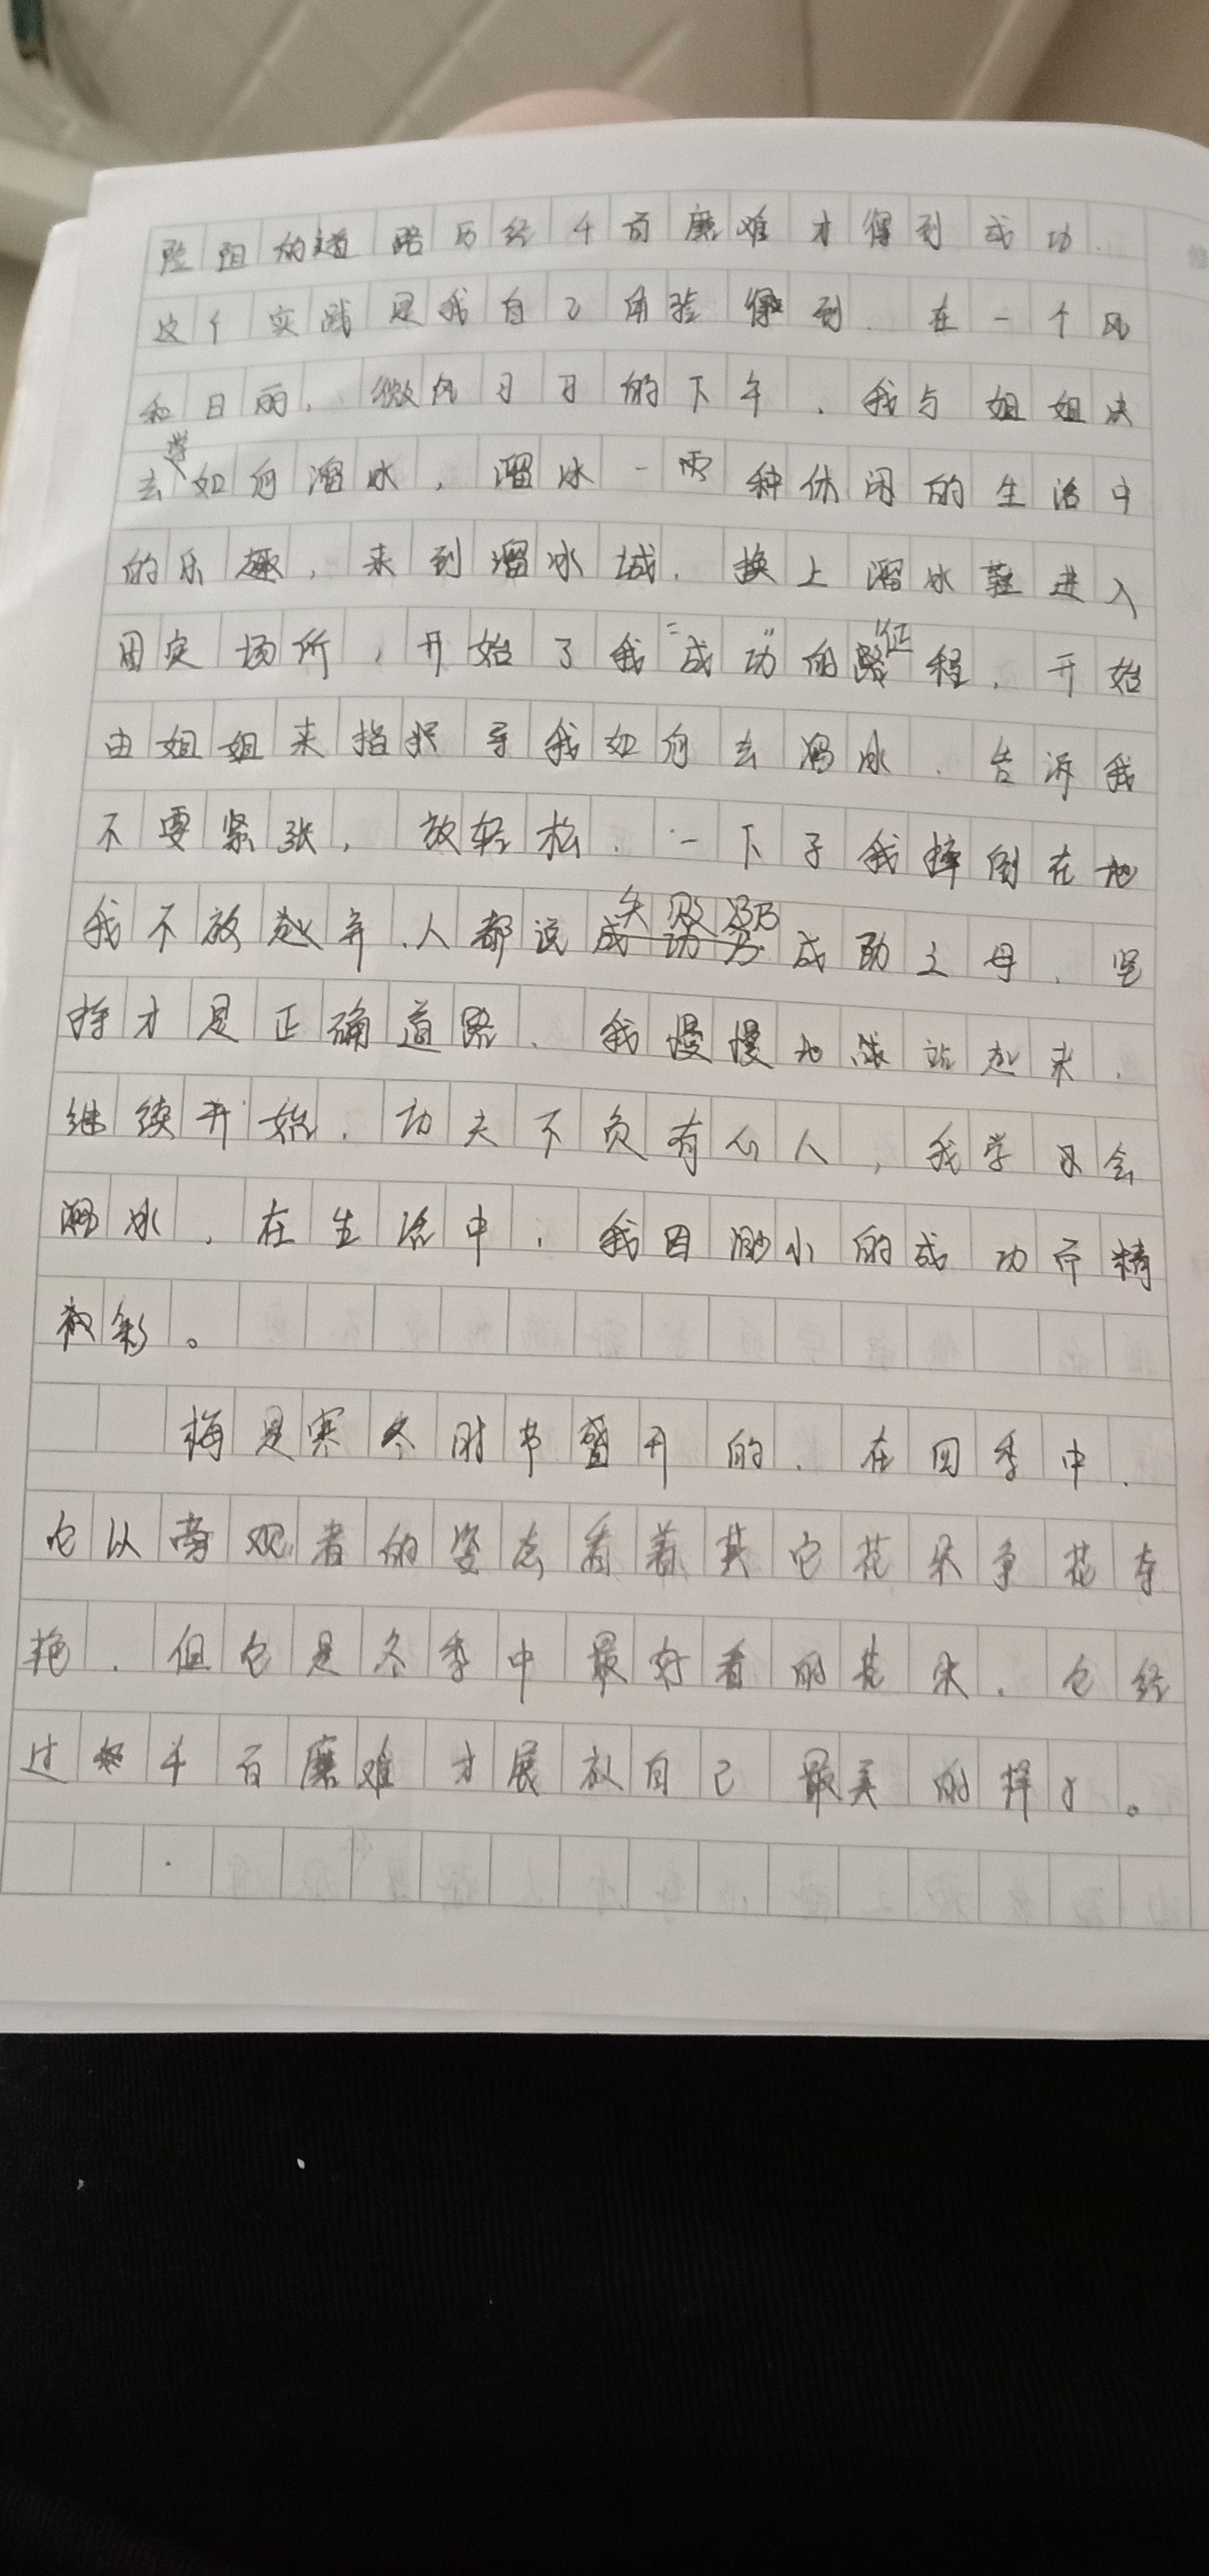 险阻的道路历经千百磨难才得到成功.
这个实践是我自己体验得到.在一个风
和日丽,微风习习的下午,我与姐姐决
去学如何溜冰,溜冰一种休闲的生活中
的乐趣,来到溜冰城.换上溜冰鞋进入
固定场所,开始了我"成功"的征程,开始
由姐姐来指导我如何去溜冰.告诉我
不要紧张,放轻松.一下子我摔倒在地
我不放弃.人都说失败乃成功之母.坚
持才是正确道路.我慢慢地站起来.
继续开始.功夫不负有心人,我学会
溜冰,在生活中,我因渺小的成功而精
彩。
梅是寒冬时节盛开的.在四季中.
它以旁观者的姿态看着其它花朵争花夺
艳.但它是冬季中最好看的花朵.它经
过千百磨难才展放自己最美的样子。